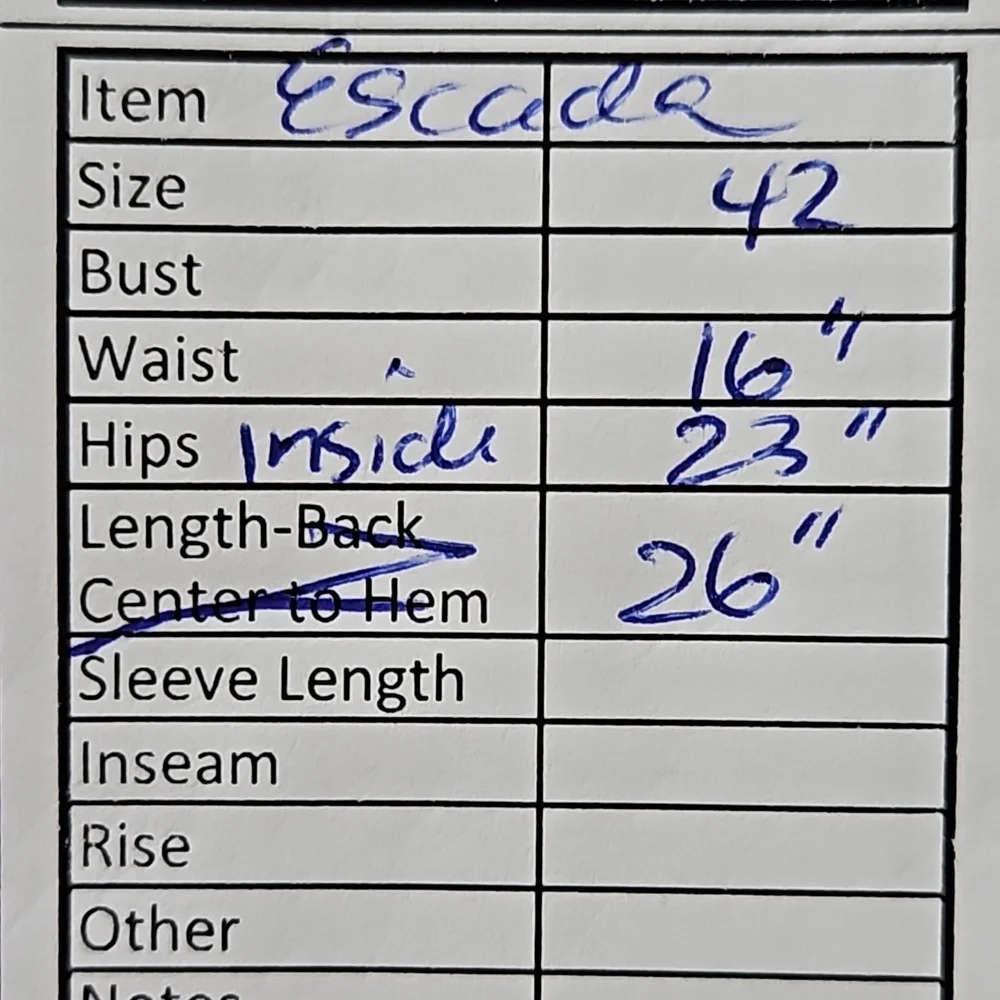 Item Escada
Size 42
Bust
Waist 16"
Hips Inside 23"
Length-Back
Center to Hem 26"
Sleeve Length
Inseam
Rise
Other
Notes